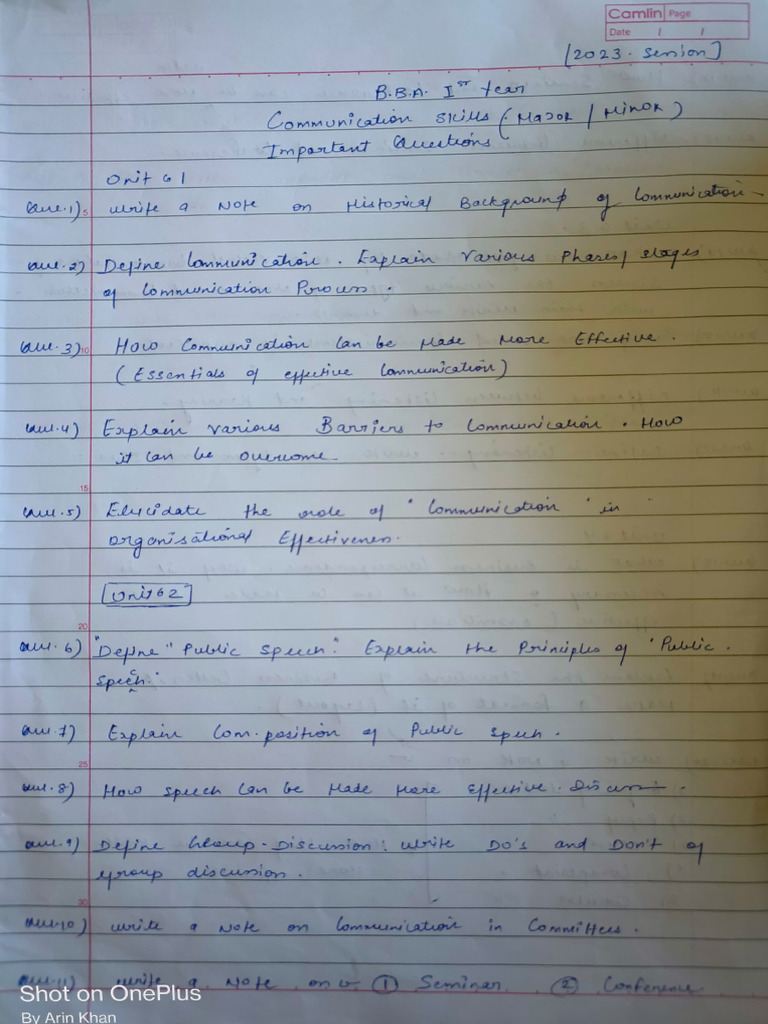 Camlin Page
Date / /
[2023. Session]
B.B.A. Ist Year
Communication Skills (Major / Minor)
Important Questions
Unit 61
Que.1) 5 Write a Note on Historical Background of Communication-
Que.2) Define Communication. Explain Various Phases/ stages
of Communication Process.
Que.3) 10 How Communication Can be Made More Effective.
(Essentials of effective Communication)
Que.4) Explain various Barriers to Communication. How
it can be overcome-
15
Que.5) Elucidate the role of "Communication" in
organisational Effectiveness.
Unit 62
20
Que.6) "Define" Public Speech". Explain the Principles of "Public.
Speech."
Que.7) Explain Com.position of Public Speech.
25
Que.8) How speech Can be Made More Effective. Discuss.
Que.9) Define Group-Discussion: write Do's and Don't of
group discussion.
30
Que.10) write a Note on Communication in Committees.
Que.11) write a Note on ① Seminar ② Conference.
Shot on OnePlus
By Arin Khan